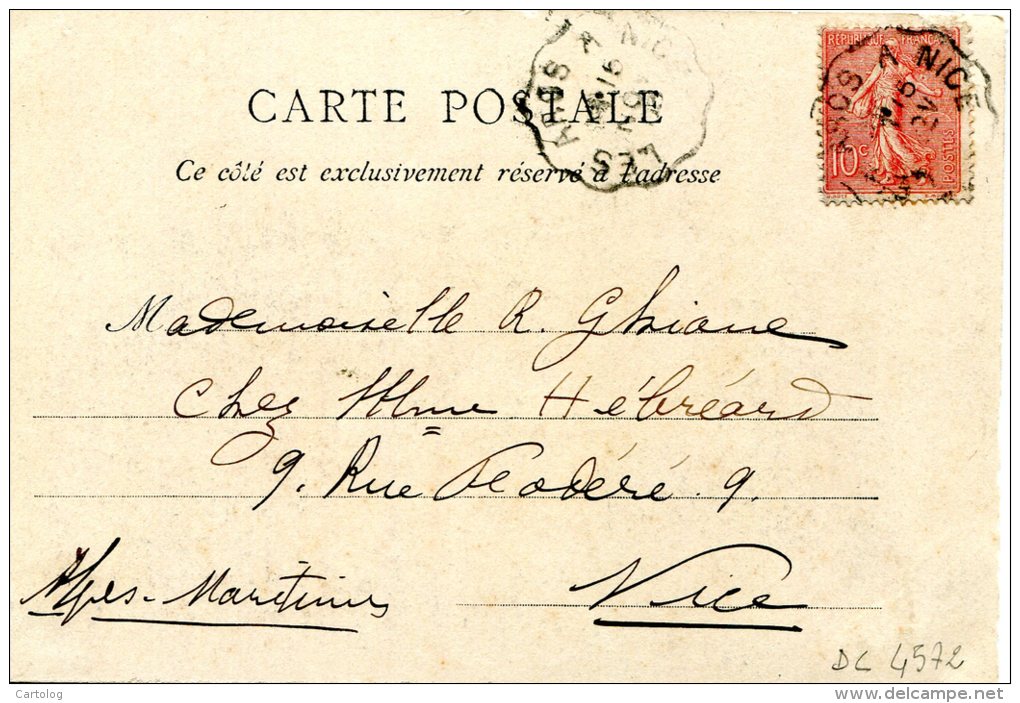 CARTE POSTALE
Ce côté est exclusivement réservé à l'adresse
LES ARCS A NICE
REPUBLIQUE FRANÇAISE
10c
POSTES
ARCS A NICE
Mademoiselle R. Ghiane
Chez Mme Hébréard
9. Rue Fodéré. 9.
Alpes-Maritimes
Nice
DC 4572
Cartolog
www.delcampe.net